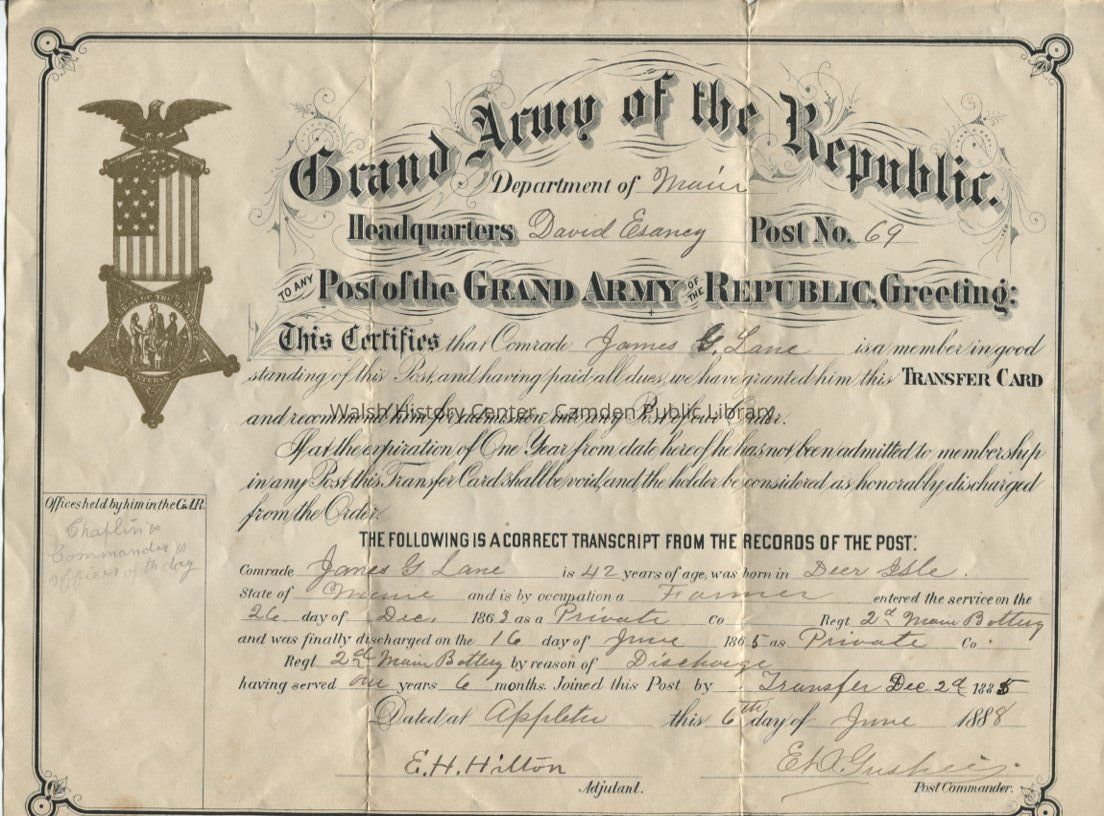 Grand Army of the Republic.
Department of Main
Headquarters David Esancy Post No. 69
TO ANY Post of the GRAND ARMY OF THE REPUBLIC, Greeting:
This Certifies that Comrade James G. Lane is a member in good
standing of this Post, and having paid all dues, we have granted him this TRANSFER CARD
and recommend him for admission into any Post of our Order.
Walsh History Center - Camden Public Library
If at the expiration of One Year from date hereof he has not been admitted to membership
in any Post this Transfer Card shall be void, and the holder be considered as honorably discharged
from the Order.
Offices held by him in the G.A.R.
Chaplin &
Commander &
officer of th day
THE FOLLOWING IS A CORRECT TRANSCRIPT FROM THE RECORDS OF THE POST:
Comrade James G Lane is 42 years of age, was born in Deer Isle.
State of Maine and is by occupation a Farmer entered the service on the
26 day of Dec. 1863 as a Private Co Regt 2d Main Battery
and was finally discharged on the 16 day of June 1865 as Private Co.
Regt. 2d Main Battery by reason of Discharge
having served one years 6 months. Joined this Post by Transfer Dec 2d 1885
Dated at Appleton this 6th day of June 1888
E. H. Hilton
Adjutant.
Post Commander.